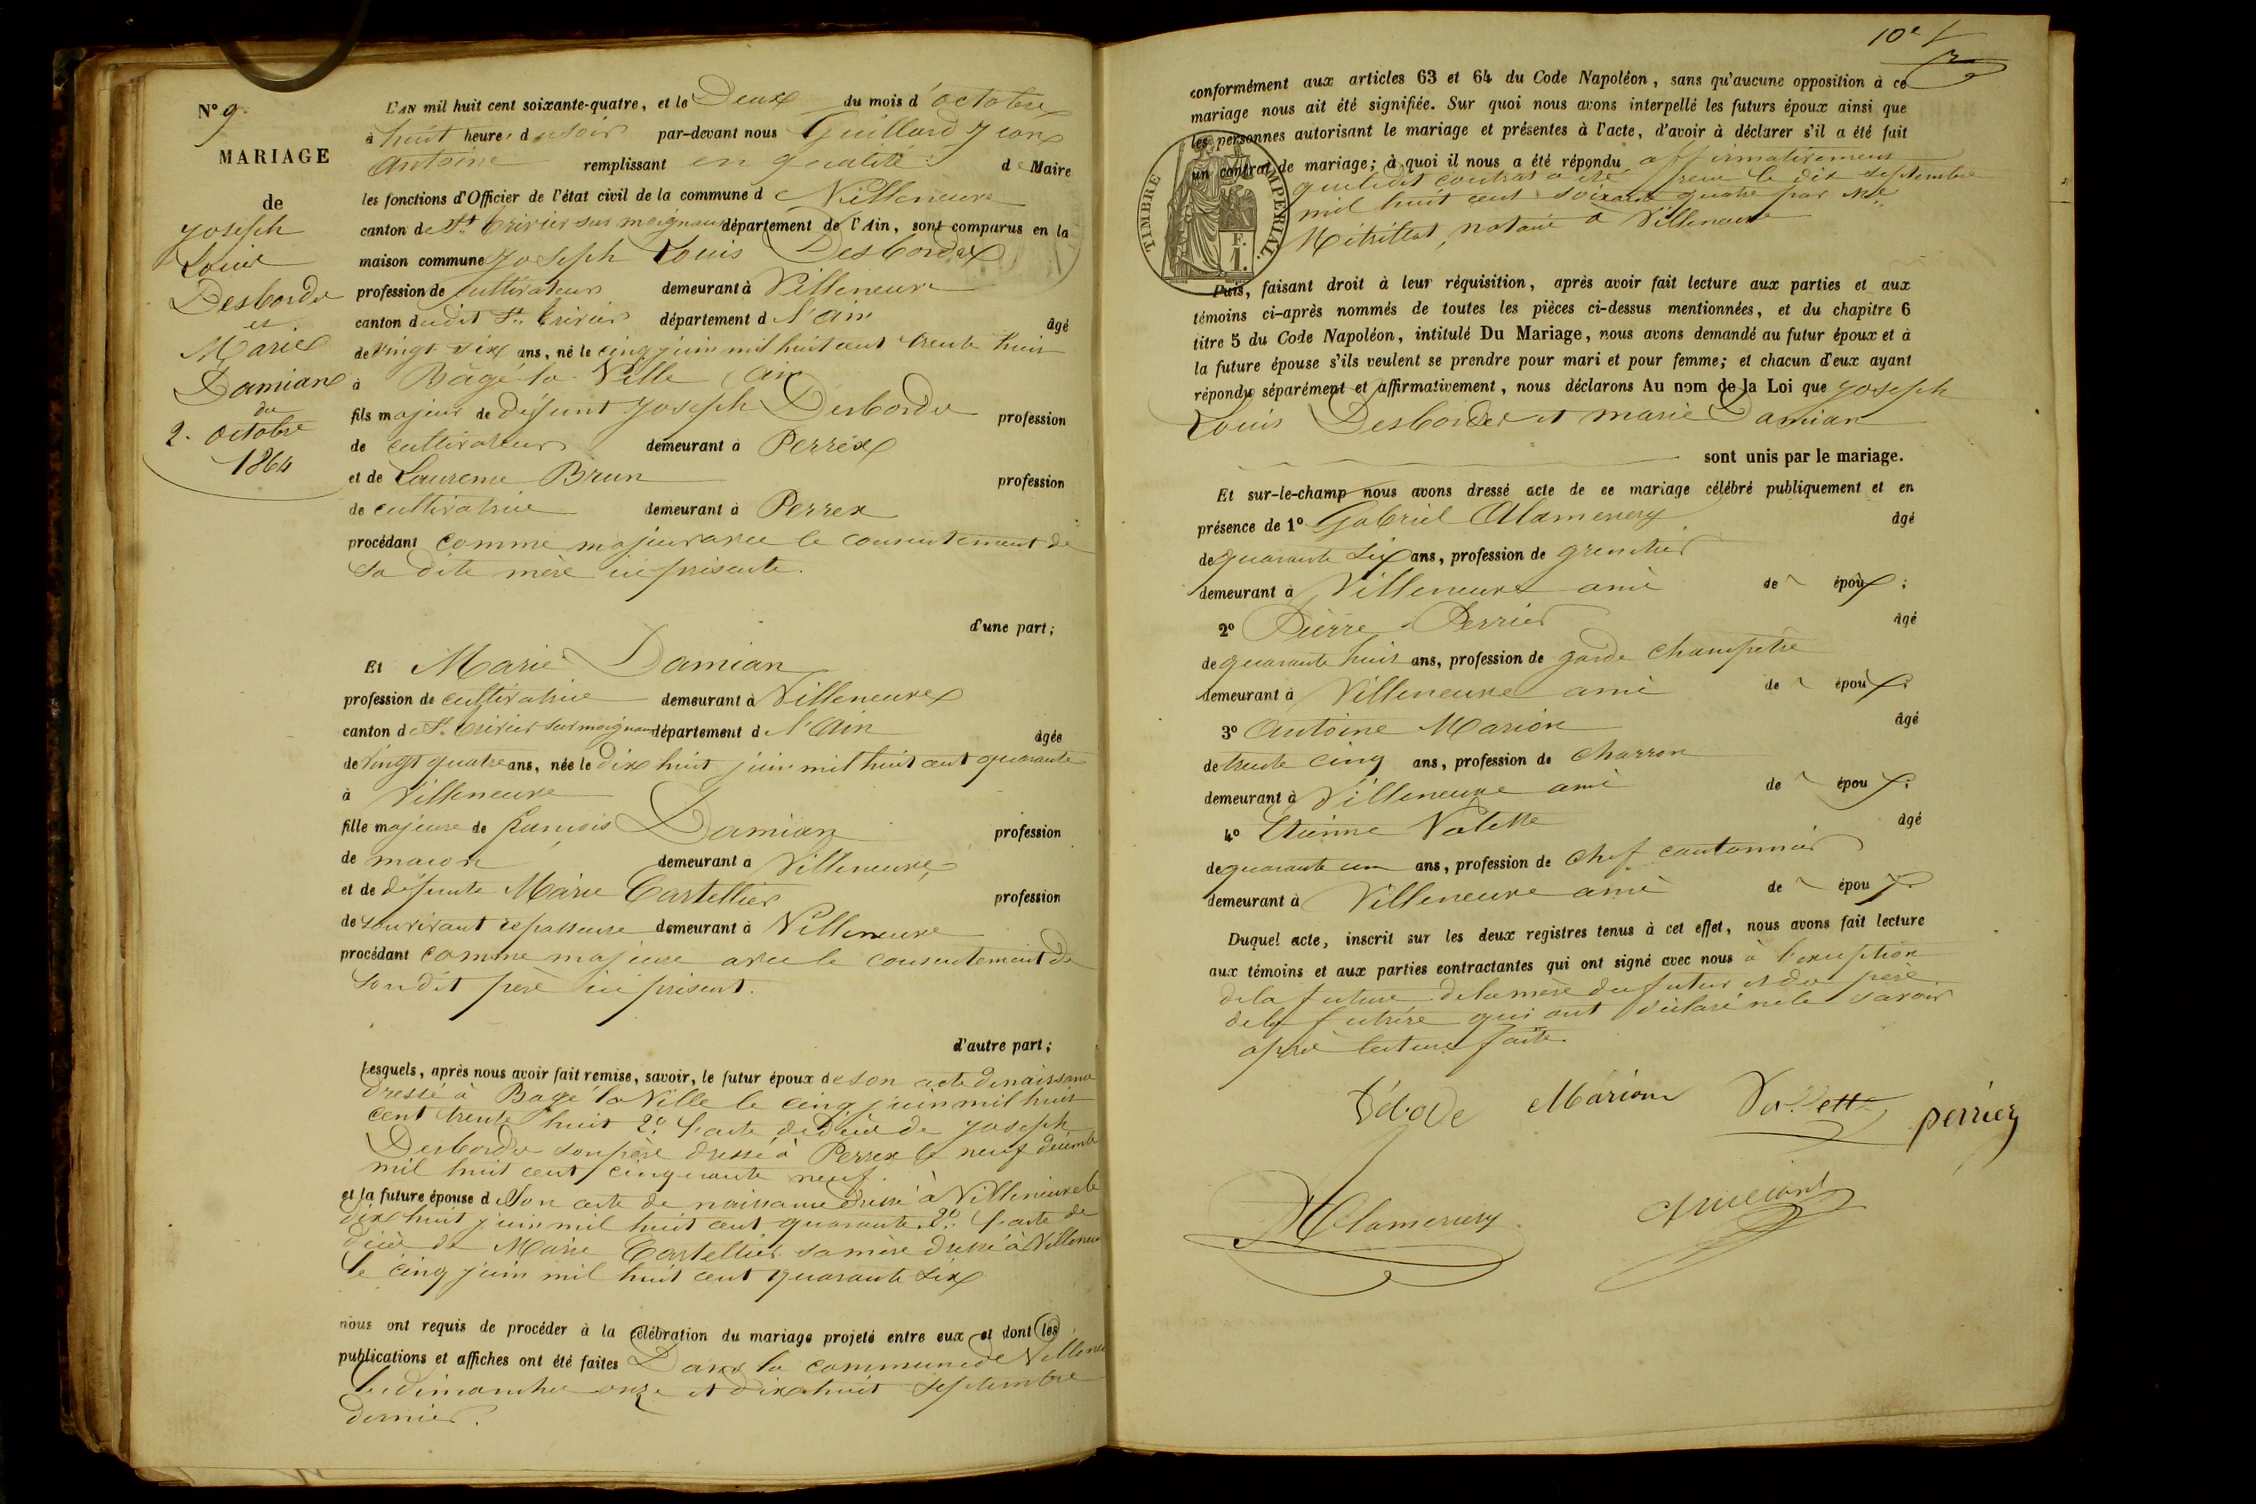 N° 9.
MARIAGE
de
Joseph
Louis
Desbordes
et
Marie
Damian
du
2. octobre
1864
L'AN mil huit cent soixante-quatre, et le Deux du mois d'octobre
à huit heures du soir par-devant nous Guillard Jean
Antoine remplissant en qualité de Maire
les fonctions d'Officier de l'état civil de la commune de Villeneuve
canton de St. Trivier sur moignans département de l'Ain, sont comparus en la
maison commune Joseph Louis Desbordes
profession de cultivateur demeurant à Villeneuve
canton dudit St. Trivier département de l'ain âgé
de vingt six ans, né le cinq juin mil huit cent trente huit
à Bâgé la Ville (ain
fils majeur de défunt Joseph Desbordes profession
de cultivateur demeurant à Perrex
et de Laurence Brun profession
de cultivatrice demeurant à Perrex
procédant comme majeur avec le consentement de
sa dite mère ici présente.
d'une part;
Et Marie Damian
profession de cultivatrice demeurant à Villeneuve
canton de St. Trivier sur moignans département de l'Ain âgée
de vingt quatre ans, née le dix huit juin mil huit cent quarante
à Villeneuve
fille majeure de françois Damian profession
de maçon demeurant à Villeneuve
et de défunte Marie Cartellier profession
de son vivant repasseuse demeurant à Villeneuve
procédant comme majeure avec le consentement de
son dit père ici présent.
d'autre part;
Lesquels, après nous avoir fait remise, savoir, le futur époux de son acte de naissance
dressé à Bagé la Ville le cinq juin mil huit
cent trente huit 2° l'acte de décès de Joseph
Desbordes son père dressé à Perrex le neuf décembre
mil huit cent cinquante neuf.
et la future épouse de son acte de naissance dressé à Villeneuve le
dix huit juin mil huit cent quarante. 2° l'acte de
décès de Marie Cartellier sa mère dressé à Villeneuve
le cinq juin mil huit cent quarante six
nous ont requis de procéder à la célébration du mariage projeté entre eux et dont les
publications et affiches ont été faites Dans la commune de Villeneuve
les dimanches onze et dix huit septembre
dernier.
10e f
conformément aux articles 63 et 64 du Code Napoléon, sans qu'aucune opposition à ce
mariage nous ait été signifiée. Sur quoi nous avons interpellé les futurs époux ainsi que
les personnes autorisant le mariage et présentes à l'acte, d'avoir à déclarer s'il a été fait
un contrat de mariage; à quoi il nous a été répondu affirmativement
que ledit contrat a été passé le dix septembre
mil huit cent soixante quatre par Me
Métrillat, notaire à Villeneuve
TIMBRE IMPÉRIAL.
F.
1.
Puis, faisant droit à leur réquisition, après avoir fait lecture aux parties et aux
témoins ci-après nommés de toutes les pièces ci-dessus mentionnées, et du chapitre 6
titre 5 du Code Napoléon, intitulé Du Mariage, nous avons demandé au futur époux et à
la future épouse s'ils veulent se prendre pour mari et pour femme; et chacun d'eux ayant
répondu séparément et affirmativement, nous déclarons Au nom de la Loi que Joseph
Louis Desbordes et marie Damian
sont unis par le mariage.
Et sur-le-champ nous avons dressé acte de ce mariage célébré publiquement et en
présence de 1° Gabriel Alamercery âgé
de quarante six ans, profession de greutier
demeurant à Villeneuve ami de époux;
2° Pierre Perrier âgé
de quarante huit ans, profession de garde champêtre
demeurant à Villeneuve ami de époux.
3° Antoine Marion âgé
de trente cinq ans, profession de charron
demeurant à Villeneuve ami de époux.
4° Etienne Valette âgé
de quarante un ans, profession de chef cantonnier
demeurant à Villeneuve ami de époux.
Duquel acte, inscrit sur les deux registres tenus à cet effet, nous avons fait lecture
aux témoins et aux parties contractantes qui ont signé avec nous à l'exception
de la future de la mère du futur et du père
de la future qui ont déclaré ne le savoir
après lecture faite.
Marion Valette perrier
Alamercery Guillard